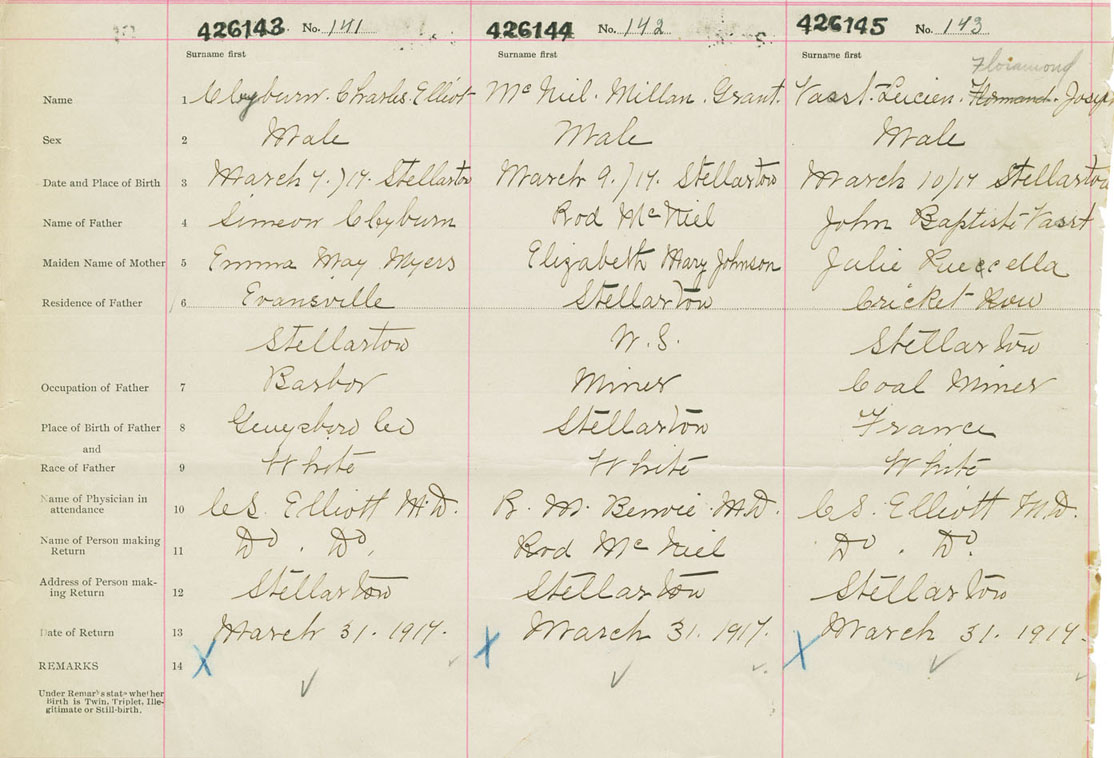 426143 No. 141 426144 No. 142 426145 No. 143
Surname first Surname first Surname first
Floiamond
Name 1 Clyburn. Charles. Elliot McNiel. Millan. Grant. Vasst. Lucien. Joseph
Sex 2 Male Male Male
Date and Place of Birth 3 March 7.)17. Stellarton March 9.)17. Stellarton March 10/17 Stellarton
Name of Father 4 Simeon Clyburn Rod McNiel John Baptiste Vasst
Maiden Name of Mother 5 Emma May Myers Elizabeth Mary Johnson Julie
Residence of Father 6 Evansville Stellarton Cricket Row
Stellarton N.S. Stellarton
Occupation of Father 7 Barbor Miner Coal Miner
Place of Birth of Father 8 Guysboro Co Stellarton France
and
Race of Father 9 White White White
Name of Physician in
attendance 10 C.S. Elliott M.D. R. M. Benvie M.D. C.S. Elliott M.D.
Name of Person making
Return 11 Do. Do. Rod McNiel Do. Do.
Address of Person mak-
ing Return 12 Stellarton Stellarton Stellarton
Date of Return 13 March 31. 1917. March 31. 1917. March 31. 1917.
REMARKS 14
Under Remarks state whether
Birth is Twin, Triplet, Ille-
gitimate or Still-birth.